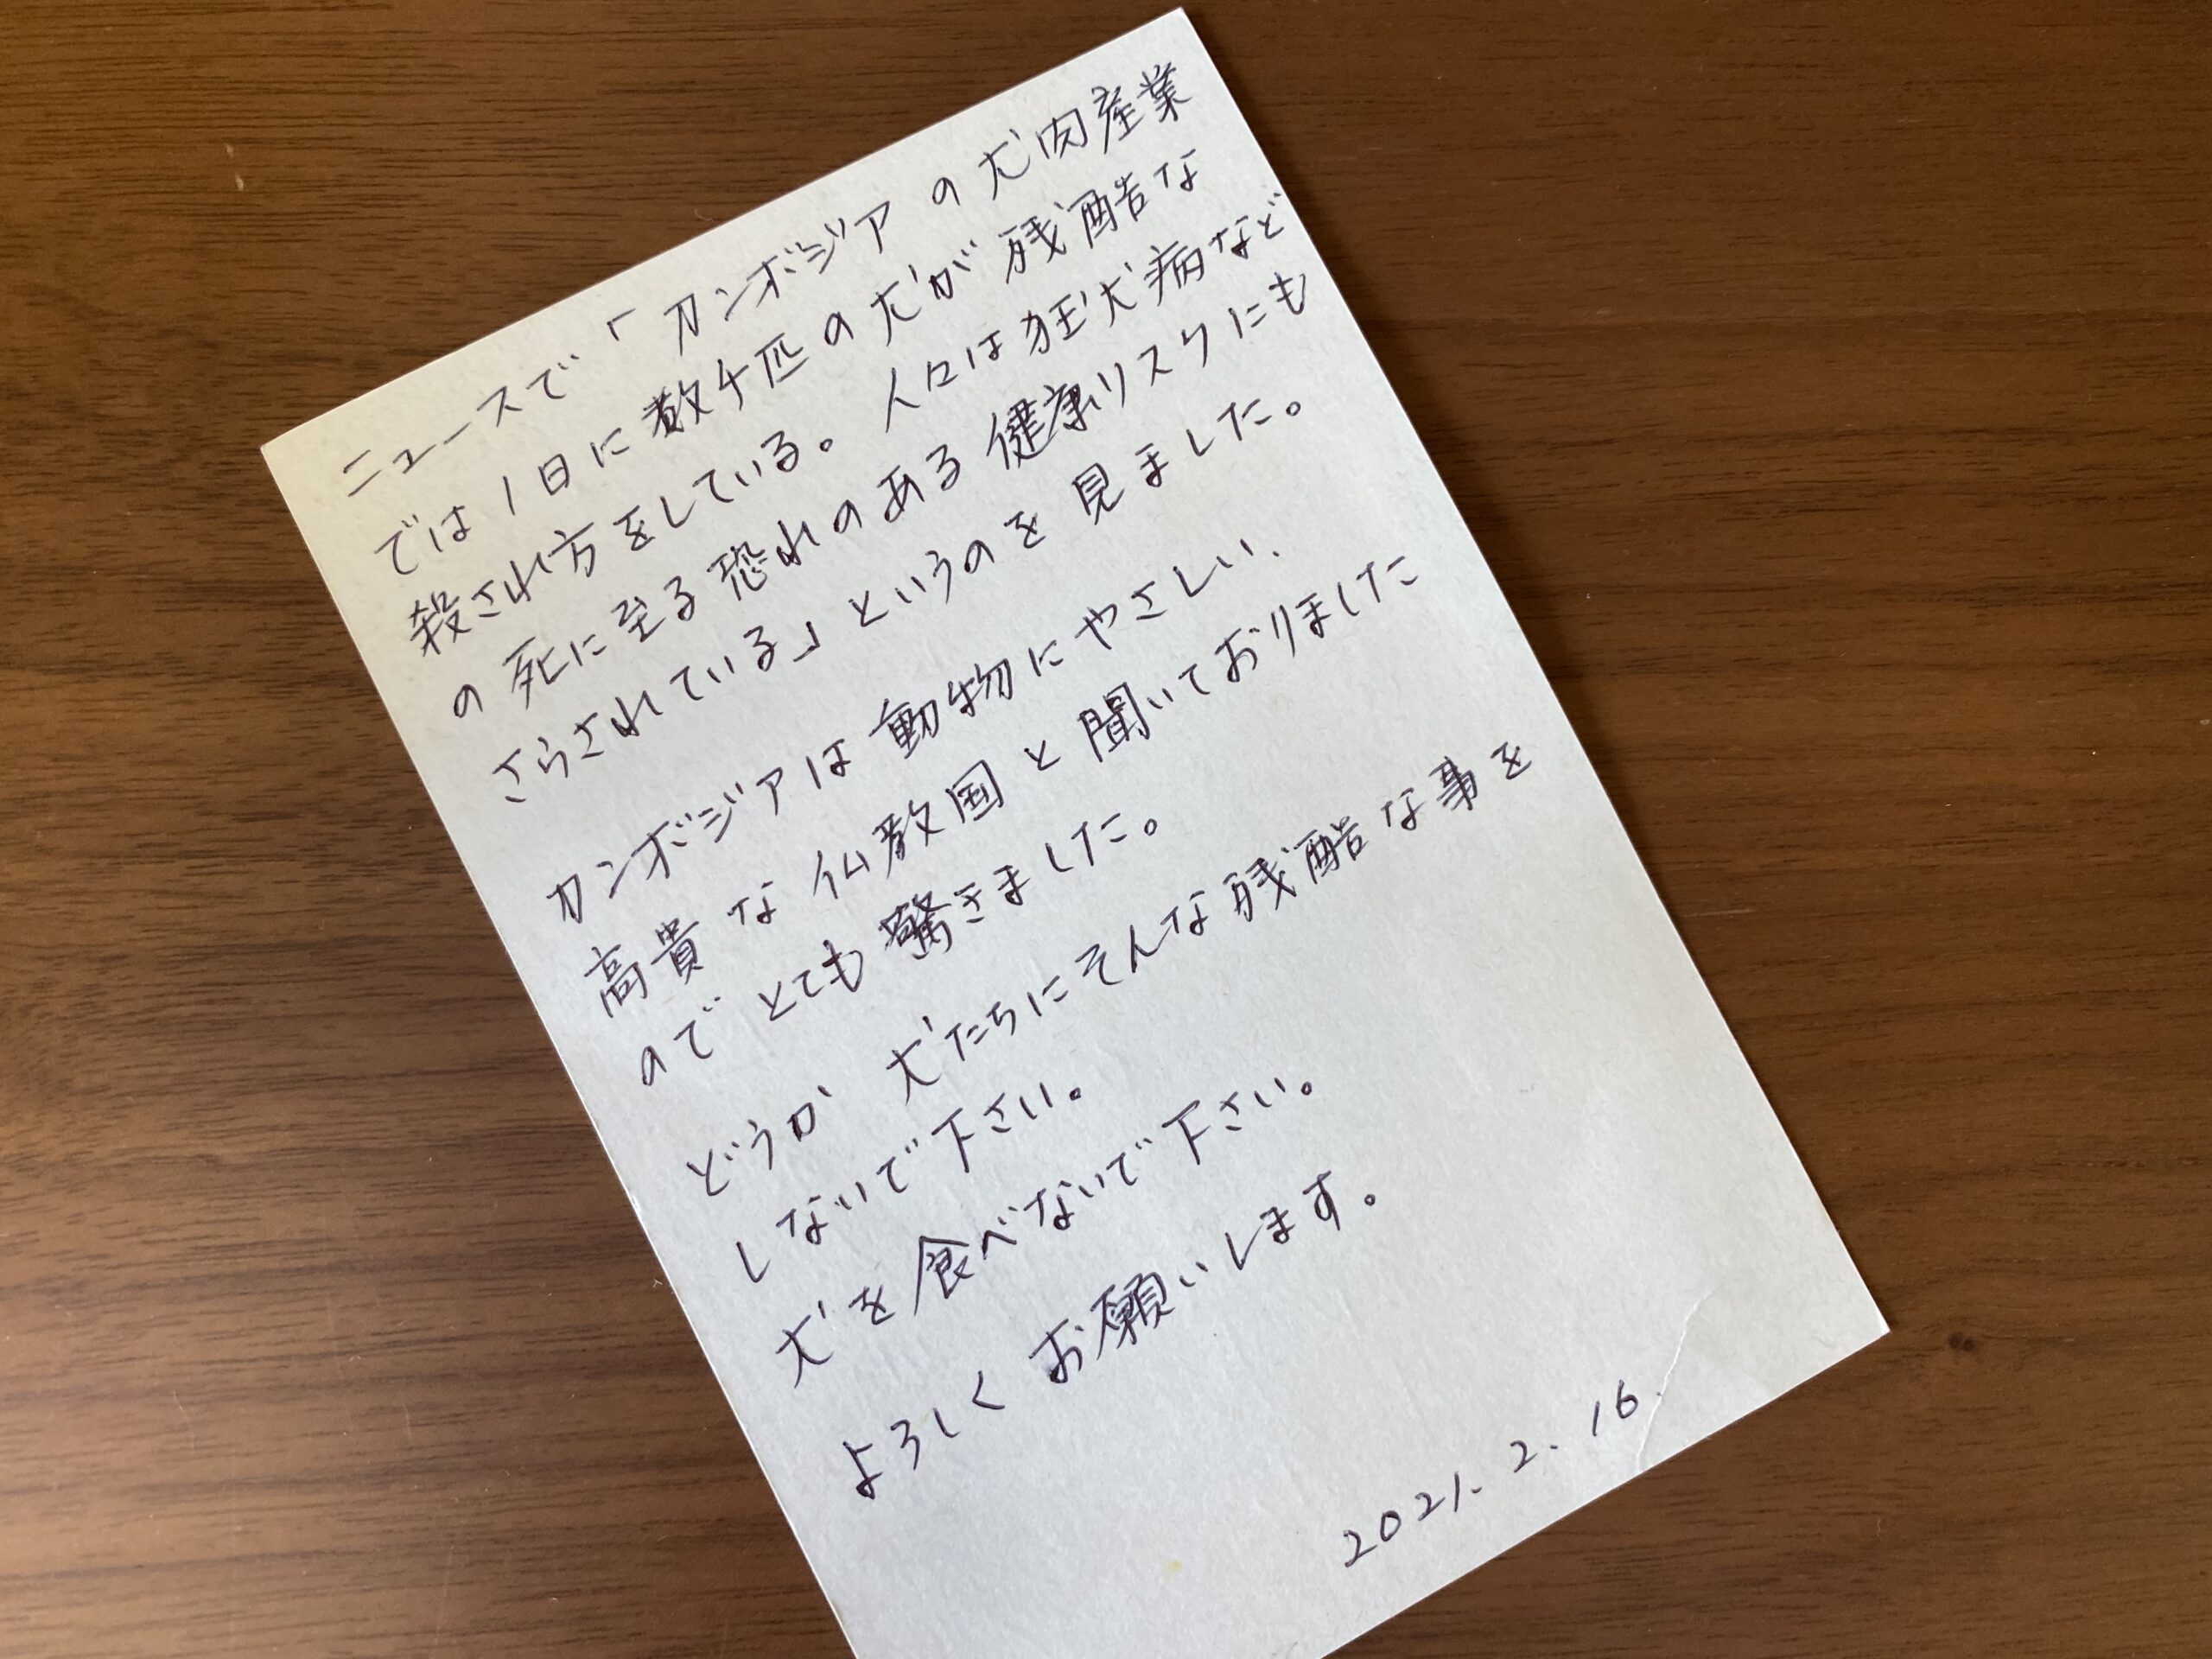 ニュースで「カンボジアの犬肉産業
では1日に数千匹の犬が残酷な
殺され方をしている。人々は狂犬病など
の死に至る恐れのある健康リスクにも
さらされている」というのを見ました。
カンボジアは動物にやさしい、
高貴な仏教国と聞いておりました
のでとても驚きました。
どうか 犬たちにそんな残酷な事を
しないで下さい。
犬を食べないで下さい。
よろしくお願いします。
2021.2.16.